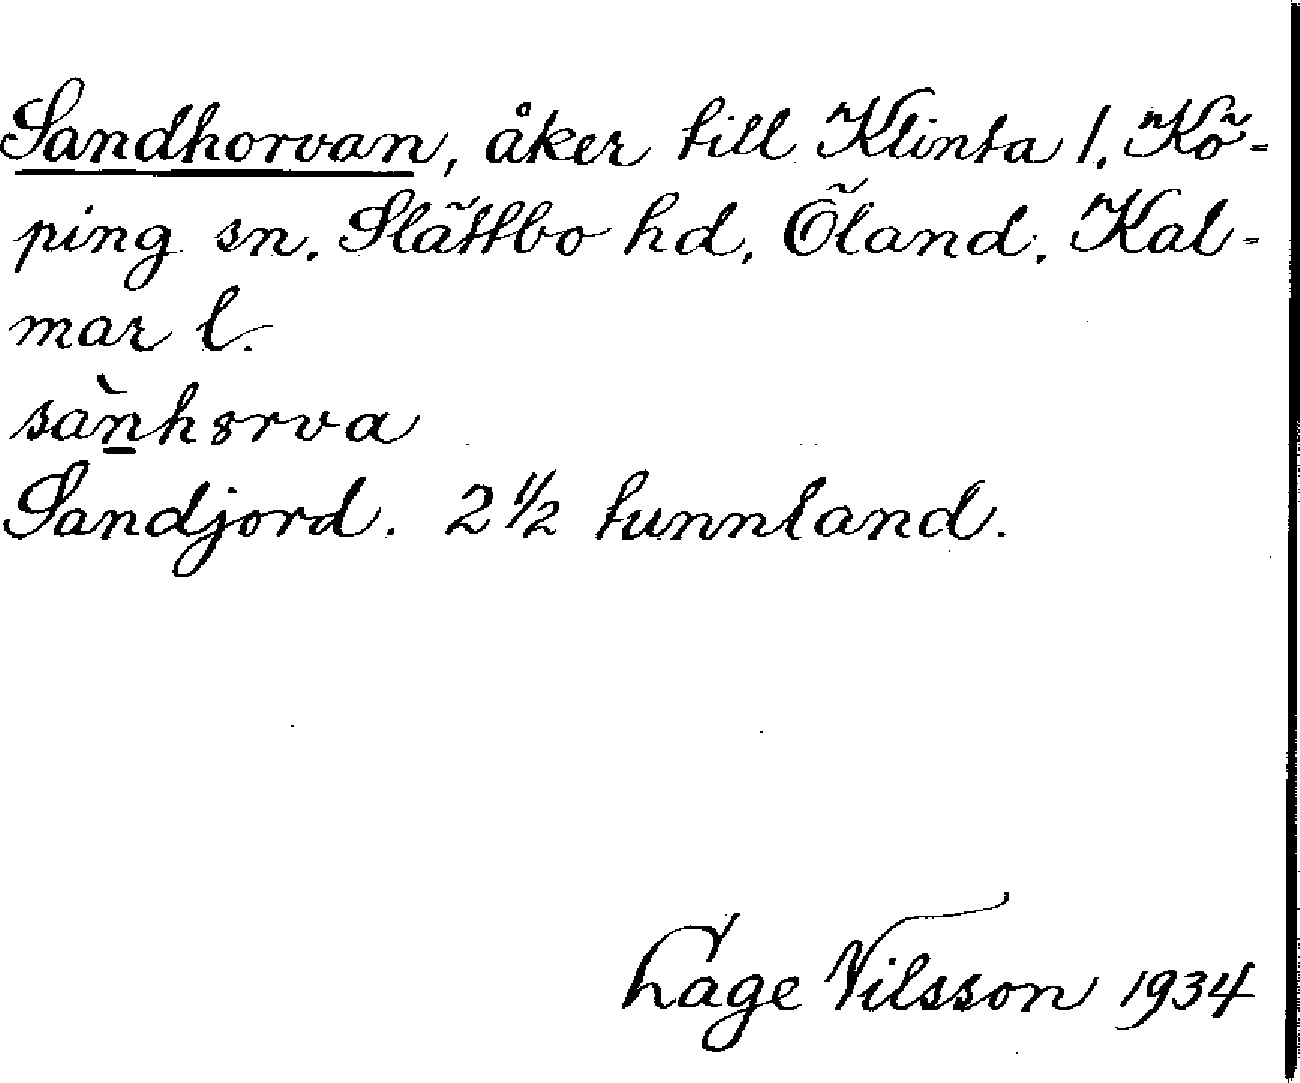 Sandhorvan, åker till Klinta 1. Kö-
ping sn. Slättbo hd, Öland. Kal-
mar l.
sàn̲hɤrva
Sandjord. 2 1/2 tunnland.
Åge Nilsson 1934